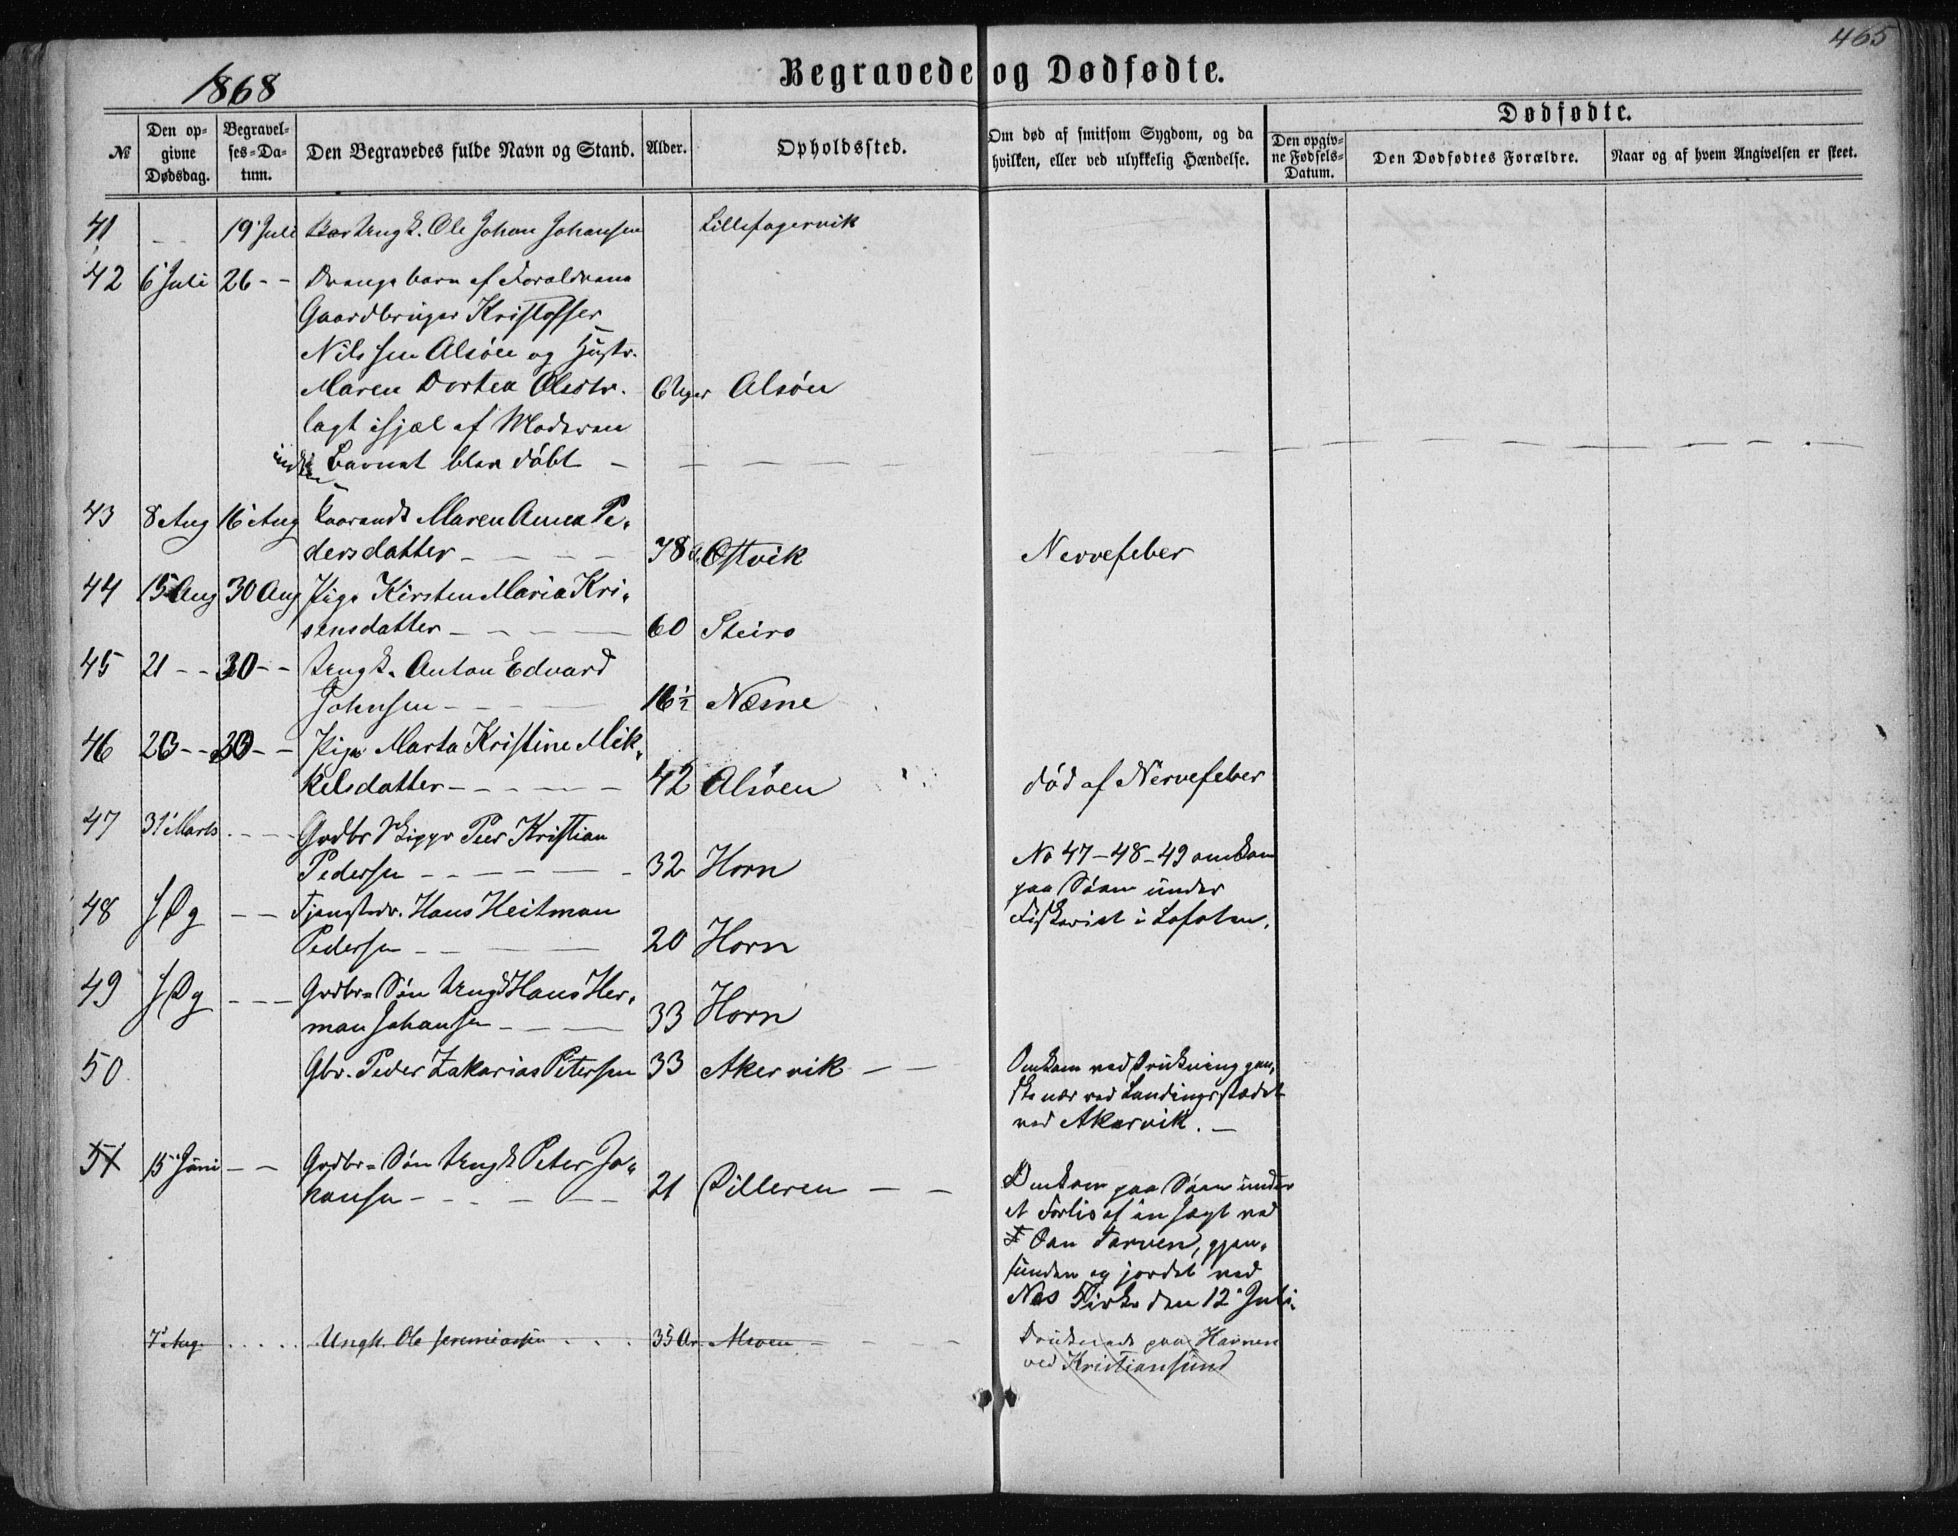 465
1868
Begravede og Dødfødte.
Dødfødte.
№
Den op-
givne
Dødsdag.
Begravel-
ses-Da-
tum.
Den Begravedes fulde Navn og Stand.
Alder.
Opholdssted.
Om død af smitsom Sygdom, og da
hvilken, eller ved ulykkelig Hændelse.
Den opgiv-
ne Fødsels-
Datum.
Den Dødfødtes Forældre.
Naar og af hvem Angivelsen er skeet.
41 - - 19 Juli Ungk. Ole Johan Johansen Lillefagervik
42 6 Juli 26 - - Drengebarn af Forældrene
Gaardbruger Kristoffer
Nilssen Alsøen og Hustr.
Maren Dortea Olsdtr. 6 Uger Alsøen
lagt ihjæl af Moderen
inden Barnet blev døbt -
43 8 Aug 16 Aug Maren Anna Pe-
dersdatter - 78 Ostvik Nervefeber
44 15 Aug 30 Aug Pige Kirsten Maria Kri-
sensdatter - 60 Steiro
45 21 - - 30 - - Ungk. Anton Edvard
Johnsen - 16½ Næsne
46 20 - - 30 - - Pige Marta Kristine Mik-
kelsdatter - 42 Alsøen død af Nervefeber
47 31 Marts - - Grdbr Skippr Peer Kristian
Pedersen - 32 Horn No 47-48-49 omkom
paa Søen under
Fiskeriet i Lofoten.
48 - - Tjenestedr. Hans Heitman
Pedersen - 20 Horn
49 - - - Grdbr= Søn Ungk Hans Her-
man Johansen - 33 Horn
50 Gbr. Peder Zakarias Petersen 33 Akervik - - Omkom ved Drukning gan-
ske nær ved Landingsstædet
ved Akervik. -
51 15 Juni - - Grdbr= Søn Ungk Peter Jo-
hansen - 21 Pilleren - - Omkom paa Søen under
et Forlis af en Jægt ved
Torven, gjen-
funden og jordet ved
Nes Kirke den 12 Juli.
7 Aug. Ungk. Ole Jeremiassen 35 Ar Druknede paa Havnen
ved Kristiansund